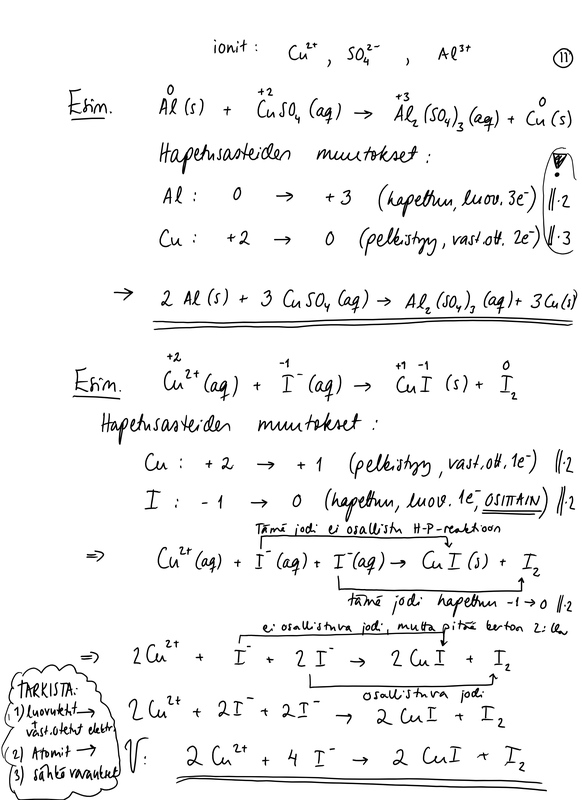 ionit: Cu²⁺, SO₄²⁻, Al³⁺
11
0 +2 +3 0
Esim. Al(s) + CuSO₄(aq) → Al₂(SO₄)₃(aq) + Cu(s)
Hapetusasteiden muutokset: !
Al: 0 → +3 (hapettuu, luov. 3e⁻) ||·2
Cu: +2 → 0 (pelkistyy, vast.ott. 2e⁻) ||·3
→ 2 Al(s) + 3 CuSO₄(aq) → Al₂(SO₄)₃(aq) + 3Cu(s)
+2 -1 +1 -1 0
Esim. Cu²⁺(aq) + I⁻(aq) → CuI(s) + I₂
Hapetusasteiden muutokset:
Cu: +2 → +1 (pelkistyy, vast.ott. 1e⁻) ||·2
I: -1 → 0 (hapettuu, luov. 1e⁻, OSITTAIN) ||·2
Tämä jodi ei osallistu H-P-reaktioon
⇒ Cu²⁺(aq) + I⁻(aq) + I⁻(aq) → CuI(s) + I₂
tämä jodi hapettuu -1→0 ||·2
ei osallistuva jodi, mutta pitää kertoa 2:lla
⇒ 2Cu²⁺ + I⁻ + 2I⁻ → 2CuI + I₂
osallistuva jodi
2Cu²⁺ + 2I⁻ + 2I⁻ → 2CuI + I₂
V: 2Cu²⁺ + 4I⁻ → 2CuI + I₂
TARKISTA:
1) luovutetut →
+
vastaotetut elektr.
2) Atomit →
3) sähkövaraukset